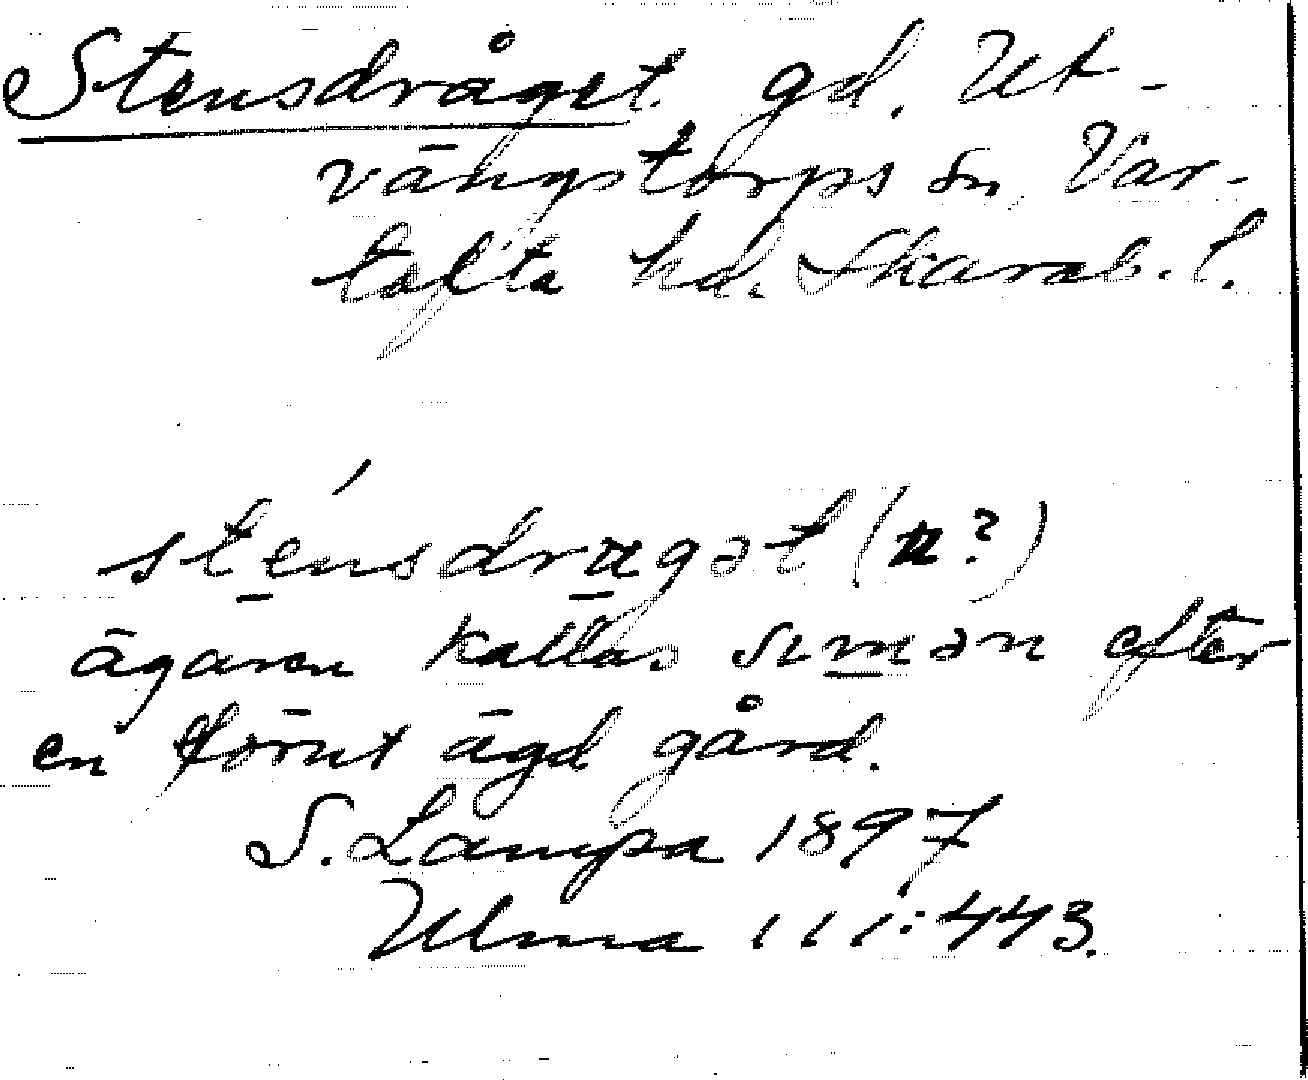 Stensdråget gd. Ut-
vängstorps sn, Var-
tofta hd. Skarab. l.
sténsdragət (n?)
ägaren kallas simən efter
en förut ägd gård.
S. Lampa 1897
Ulma 111:443.